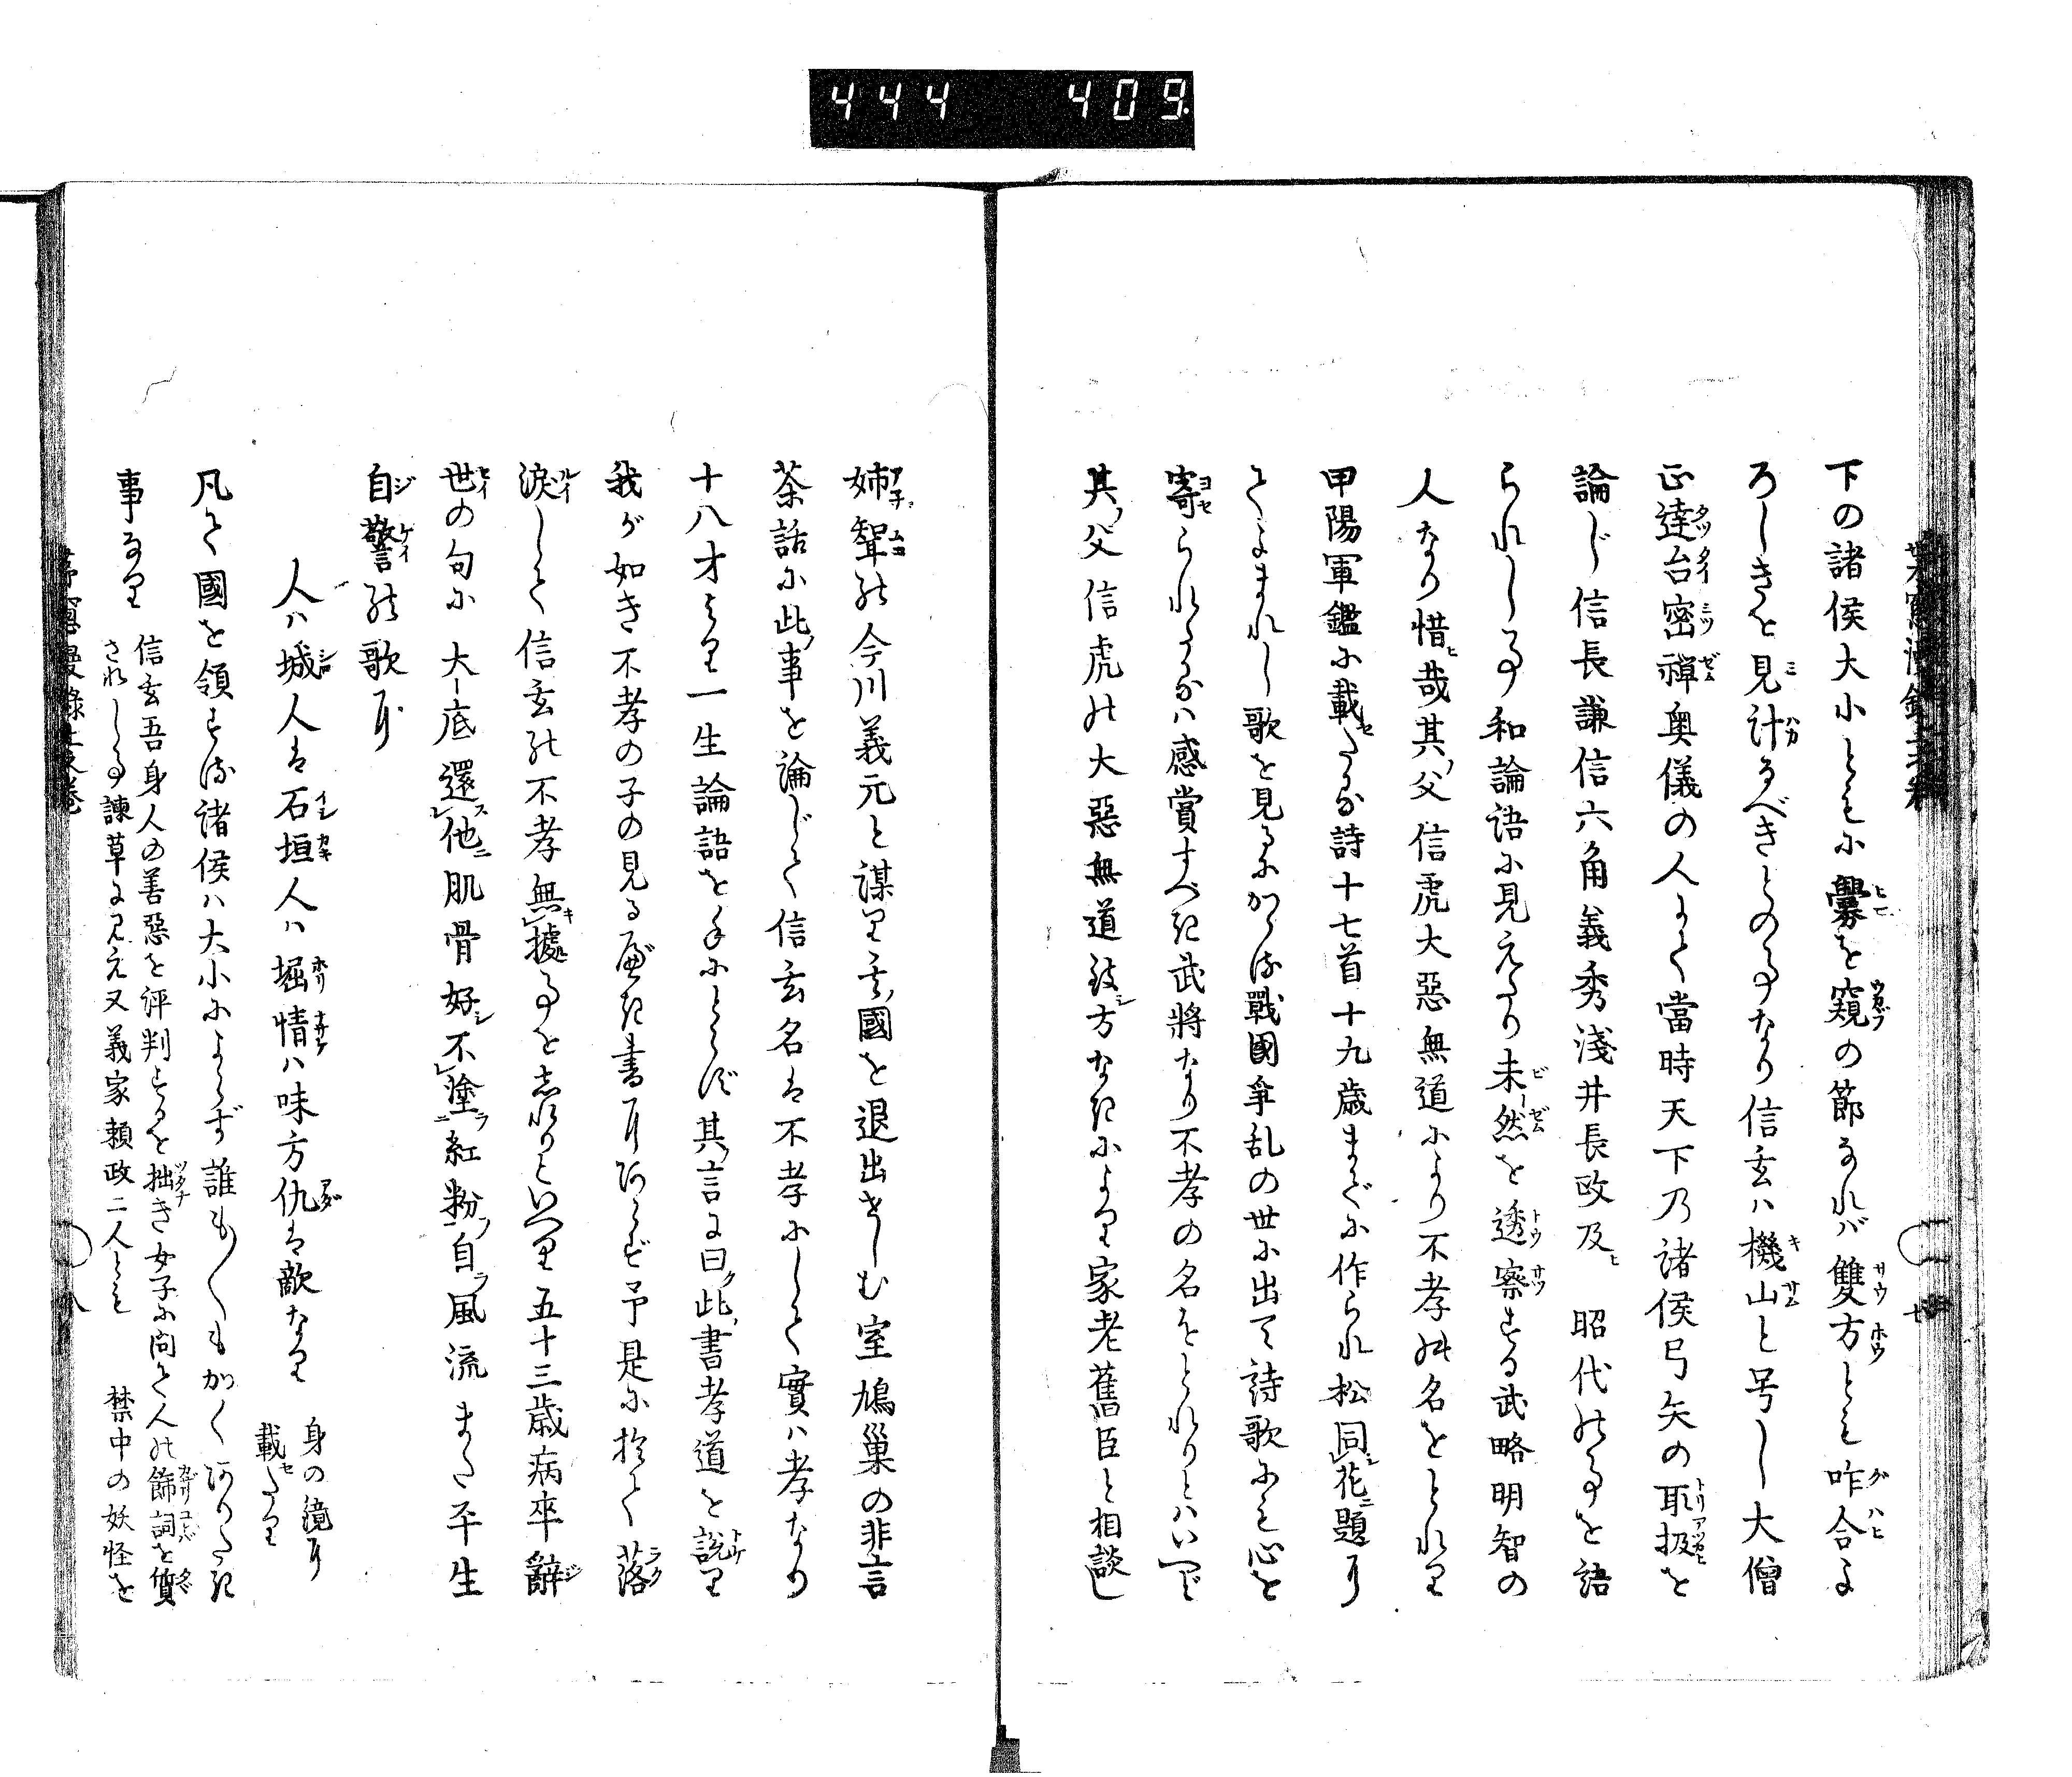 444 409
下の諸侯大小ともに釁を窺の節なれバ雙方とも咋合よ
ろしきを見計るべきとの事なり信玄ハ機山と号し大僧
正達台密禪奥儀の人にて當時天下乃諸侯弓矢の取扱を
論じ信長謙信六角義秀淺井長政及 昭代の事を語
られし事和論語に見えたり未然を透察する武略明智の
人なり惜哉其父信虎大惡無道により不孝の名をとれり
甲陽軍鑑に載たる詩十七首十九歳までに作られ松同花題耳
てよまれし歌を見るにかゝる戰國爭乱の世に出て詩歌にも心を
寄られたるハ感賞すべき武將なり不孝の名をとれりとハいへど
其父信虎の大惡無道致方なきにより家老舊臣と相談し
姉聟の今川義元と謀り其國を退出せしむ室鳩巣の非言
茶話に此事を論じて信玄名は不孝にして實ハ孝なり
十八才より一生論語を手にとらず其言に曰此書孝道を説り
我が如き不孝の子の見るべき書耳あらず予是に於て落
涙して信玄の不孝無據事を志れりといへり五十三歳病卒辭
世の句に大底還他肌骨好不塗紅粉自風流また平生
自警の歌耳
人ハ城人は石垣人ハ堀情ハ味方仇は敵なり 身の鏡耳載たり
凡て國を領する諸侯ハ大小によらず誰も〱もかくありたき
事なり 信玄吾身人の善惡を評判するを拙き女子に問て人の飾詞を質
されし事諫草に見え又義家頼政二人とも 禁中の妖怪を
茅窻漫錄上之巻